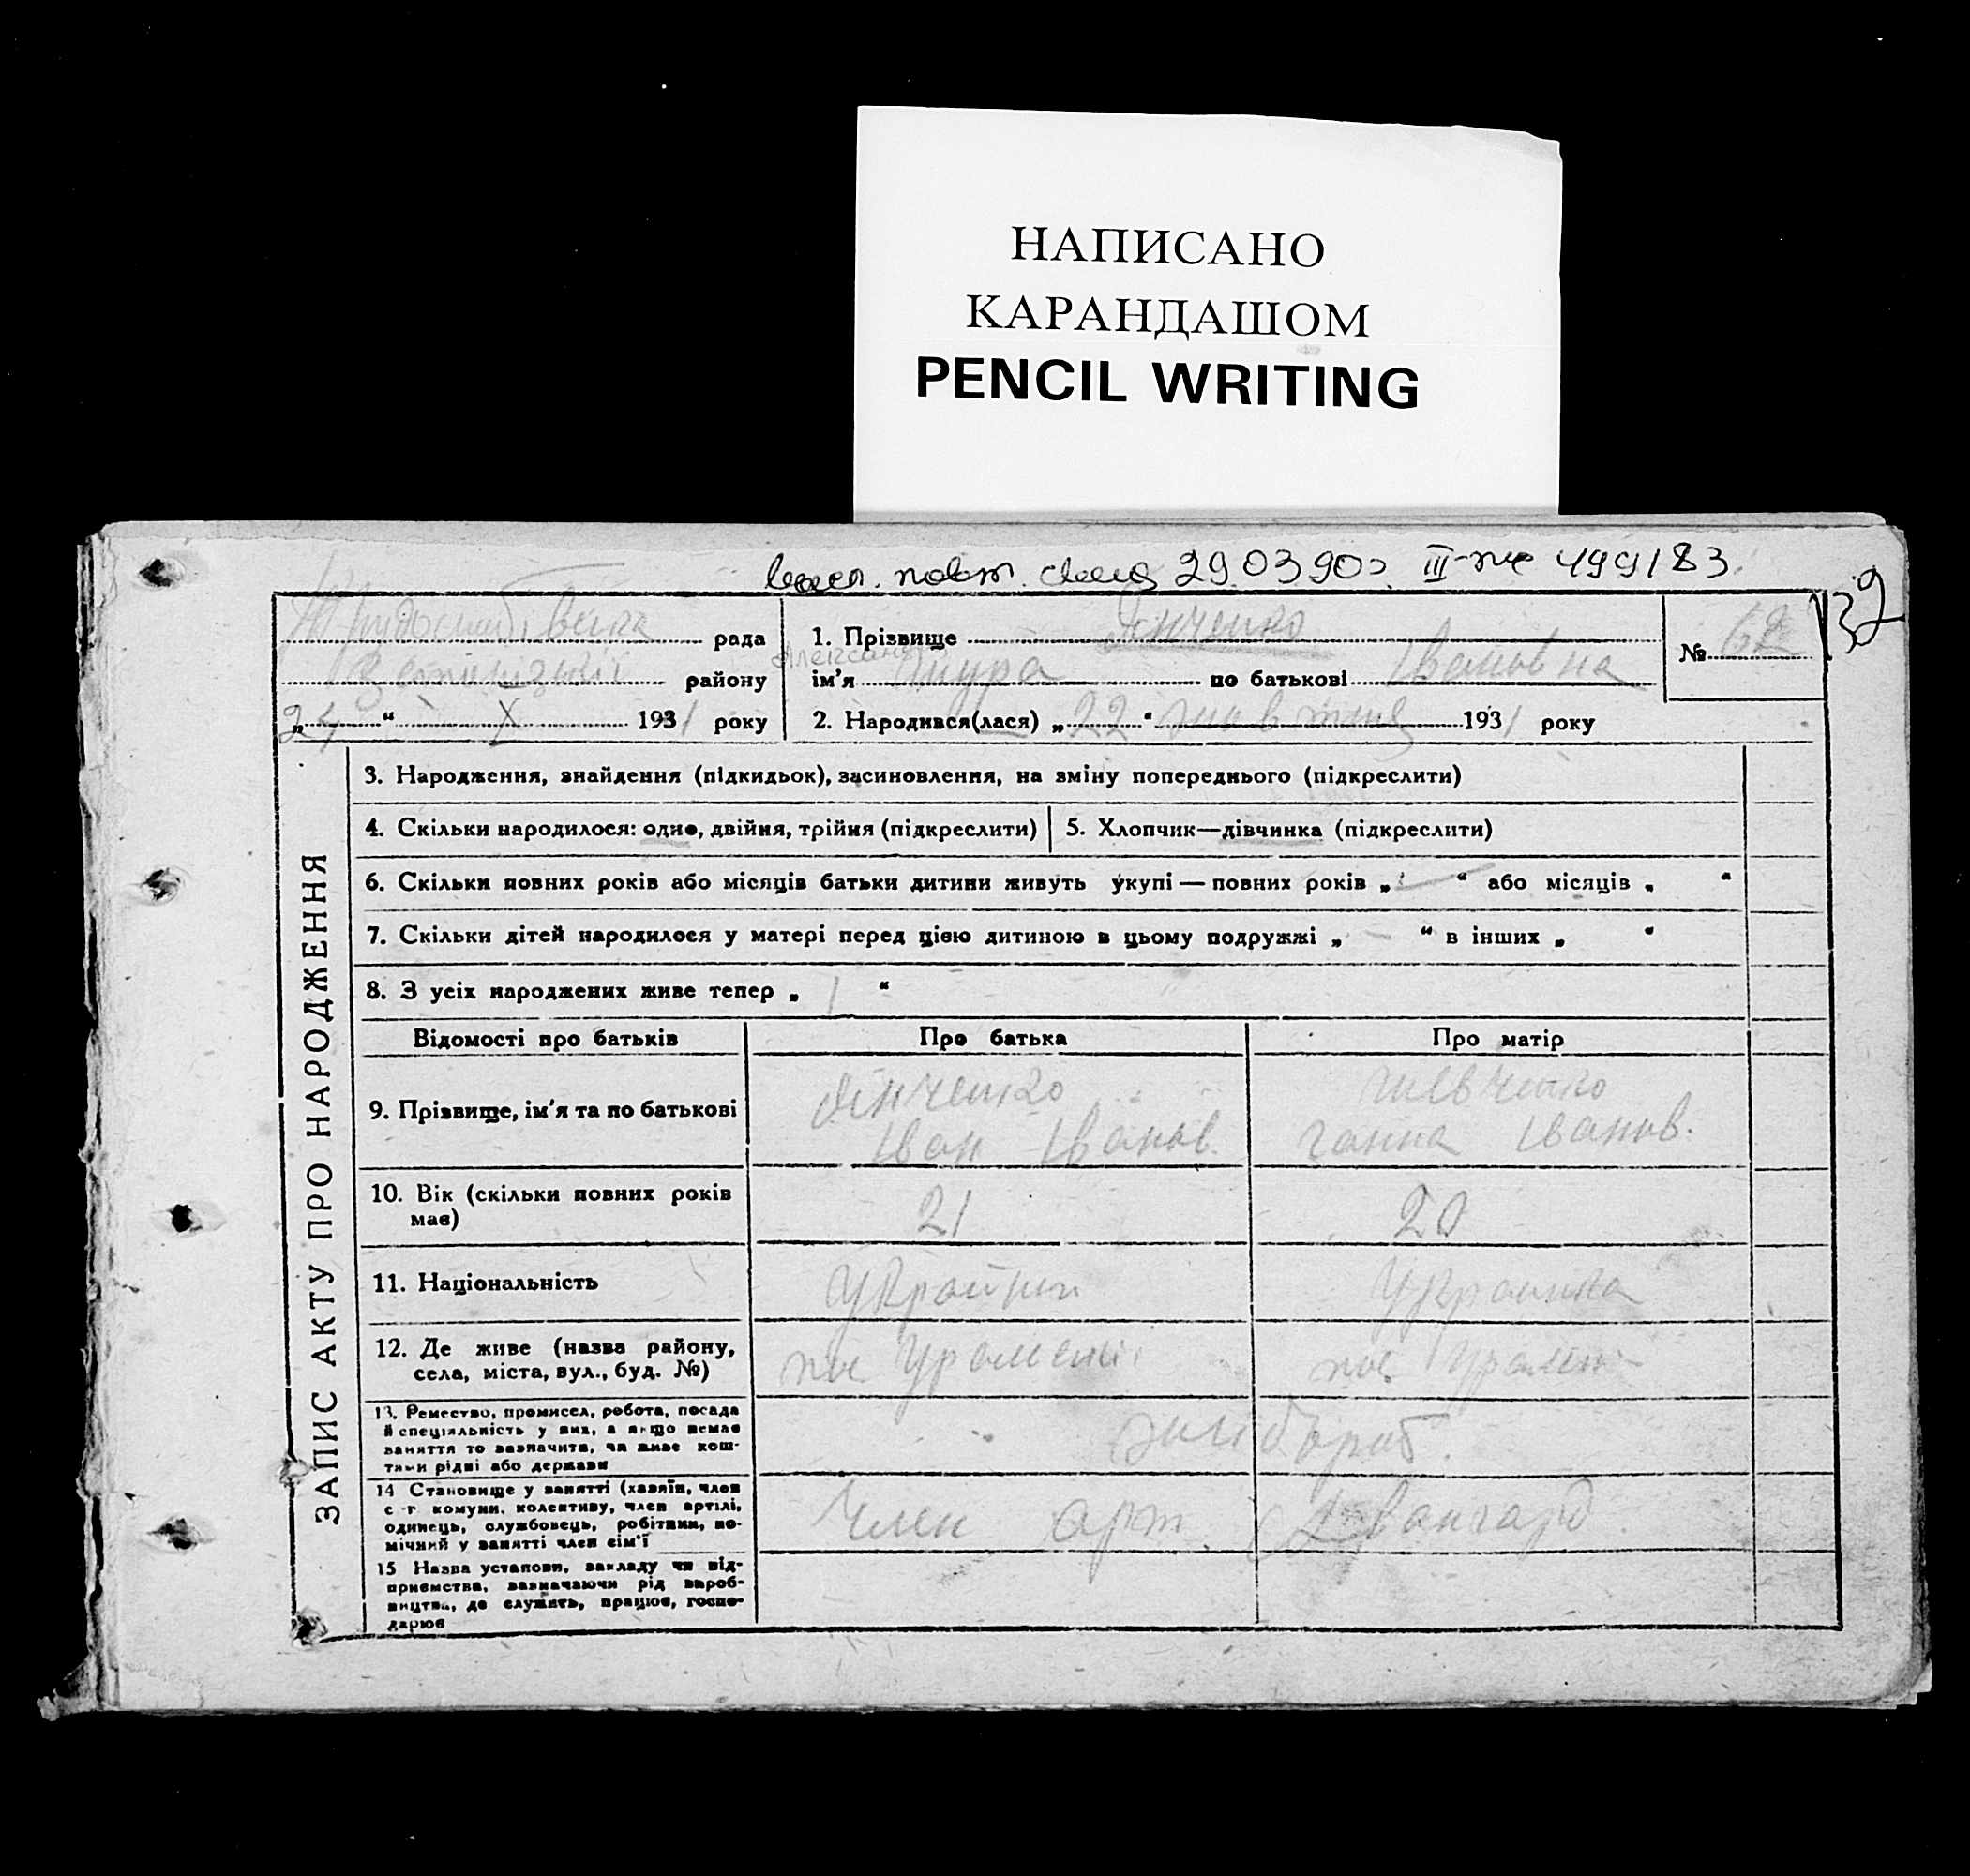 НАПИСАНО
КАРАНДАШОМ
PENCIL WRITING
29.03.90 III 499183
32
рада
району
24 “ X 1931 року
1. Прізвище Дінченко
ім’я Шура по батькові Івановна
№ 62
2. Народився(лася) „22“ жовтня 1931 року
ЗАПИС АКТУ ПРО НАРОДЖЕННЯ
3. Народження, знайдення (підкидьок), засиновлення, на зміну попереднього (підкреслити)
4. Скільки народилося: одно, двійня, трійня (підкреслити)
5. Хлопчик—дівчинка (підкреслити)
6. Скільки повних років або місяців батьки дитини живуть укупі — повних років „ “ або місяців „ “
7. Скільки дітей народилося у матері перед цією дитиною в цьому подружжі „ — “ в інших „ “
8. З усіх народжених живе тепер „ 1 “
Відомості про батьків
Про батька
Про матір
9. Прізвище, ім’я та по батькові
Дінченко
Іван Іванов.
Шевченко
Ганна Іванов.
10. Вік (скільки повних років
має)
21
20
11. Національність
Україн
Украинка
12. Де живе (назва району,
села, міста, вул., буд. №)
пос
пос.
13. Ремество, промисел, робота, посада
й спеціяльність у них, а якщо немає
заняття то зазначити, чи живе кош-
тами рідні або держави
хлібороб.
14 Становище у занятті (хазяїн, член
с-г комуни, колективу, член артілі,
одинець, службовець, робітник, по-
мічний у занятті член сім’ї
Член арт. Авангард
15 Назва установи, закладу чи під-
приємства, зазначаючи рід вироб-
ництва, де служить, працює, госпо-
дарює